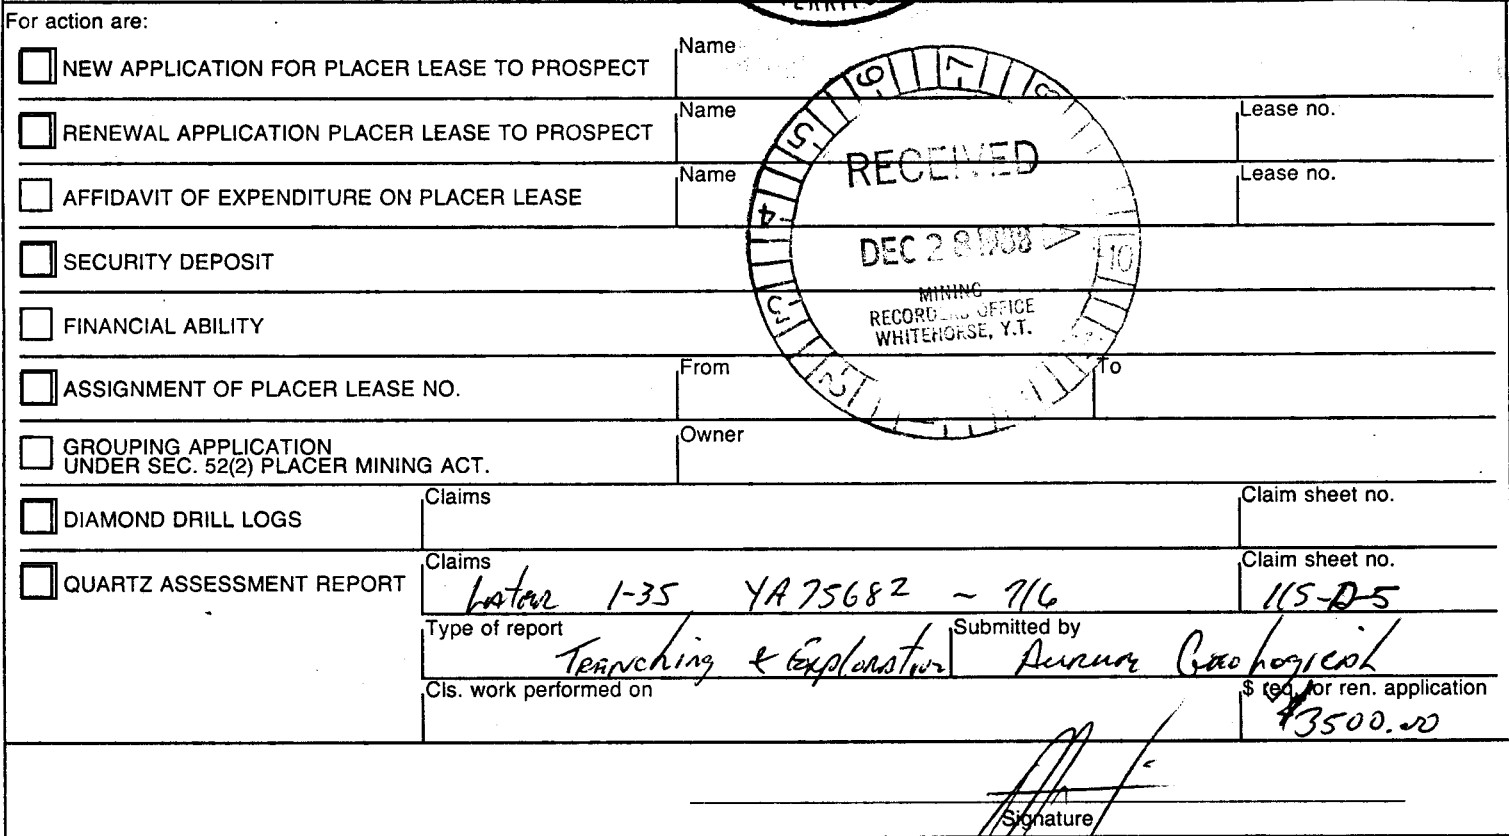 For action are:
NEW APPLICATION FOR PLACER LEASE TO PROSPECT
Name
RENEWAL APPLICATION PLACER LEASE TO PROSPECT
Name
Lease no.
AFFIDAVIT OF EXPENDITURE ON PLACER LEASE
Name
Lease no.
SECURITY DEPOSIT
FINANCIAL ABILITY
ASSIGNMENT OF PLACER LEASE NO.
From
To
GROUPING APPLICATION
UNDER SEC. 52(2) PLACER MINING ACT.
Owner
DIAMOND DRILL LOGS
Claims
Claim sheet no.
QUARTZ ASSESSMENT REPORT
Claims
Latour 1-35 YA75682 - 716
Claim sheet no.
115-A-5
Type of report
Trenching & Exploration
Submitted by
Aurum Geological
Cls. work performed on
$ req. for ren. application
$3500.00
Signature
2 3 4 5 6 7 8 10
RECEIVED
DEC 28
MINING
RECORDERS OFFICE
WHITEHORSE, Y.T.